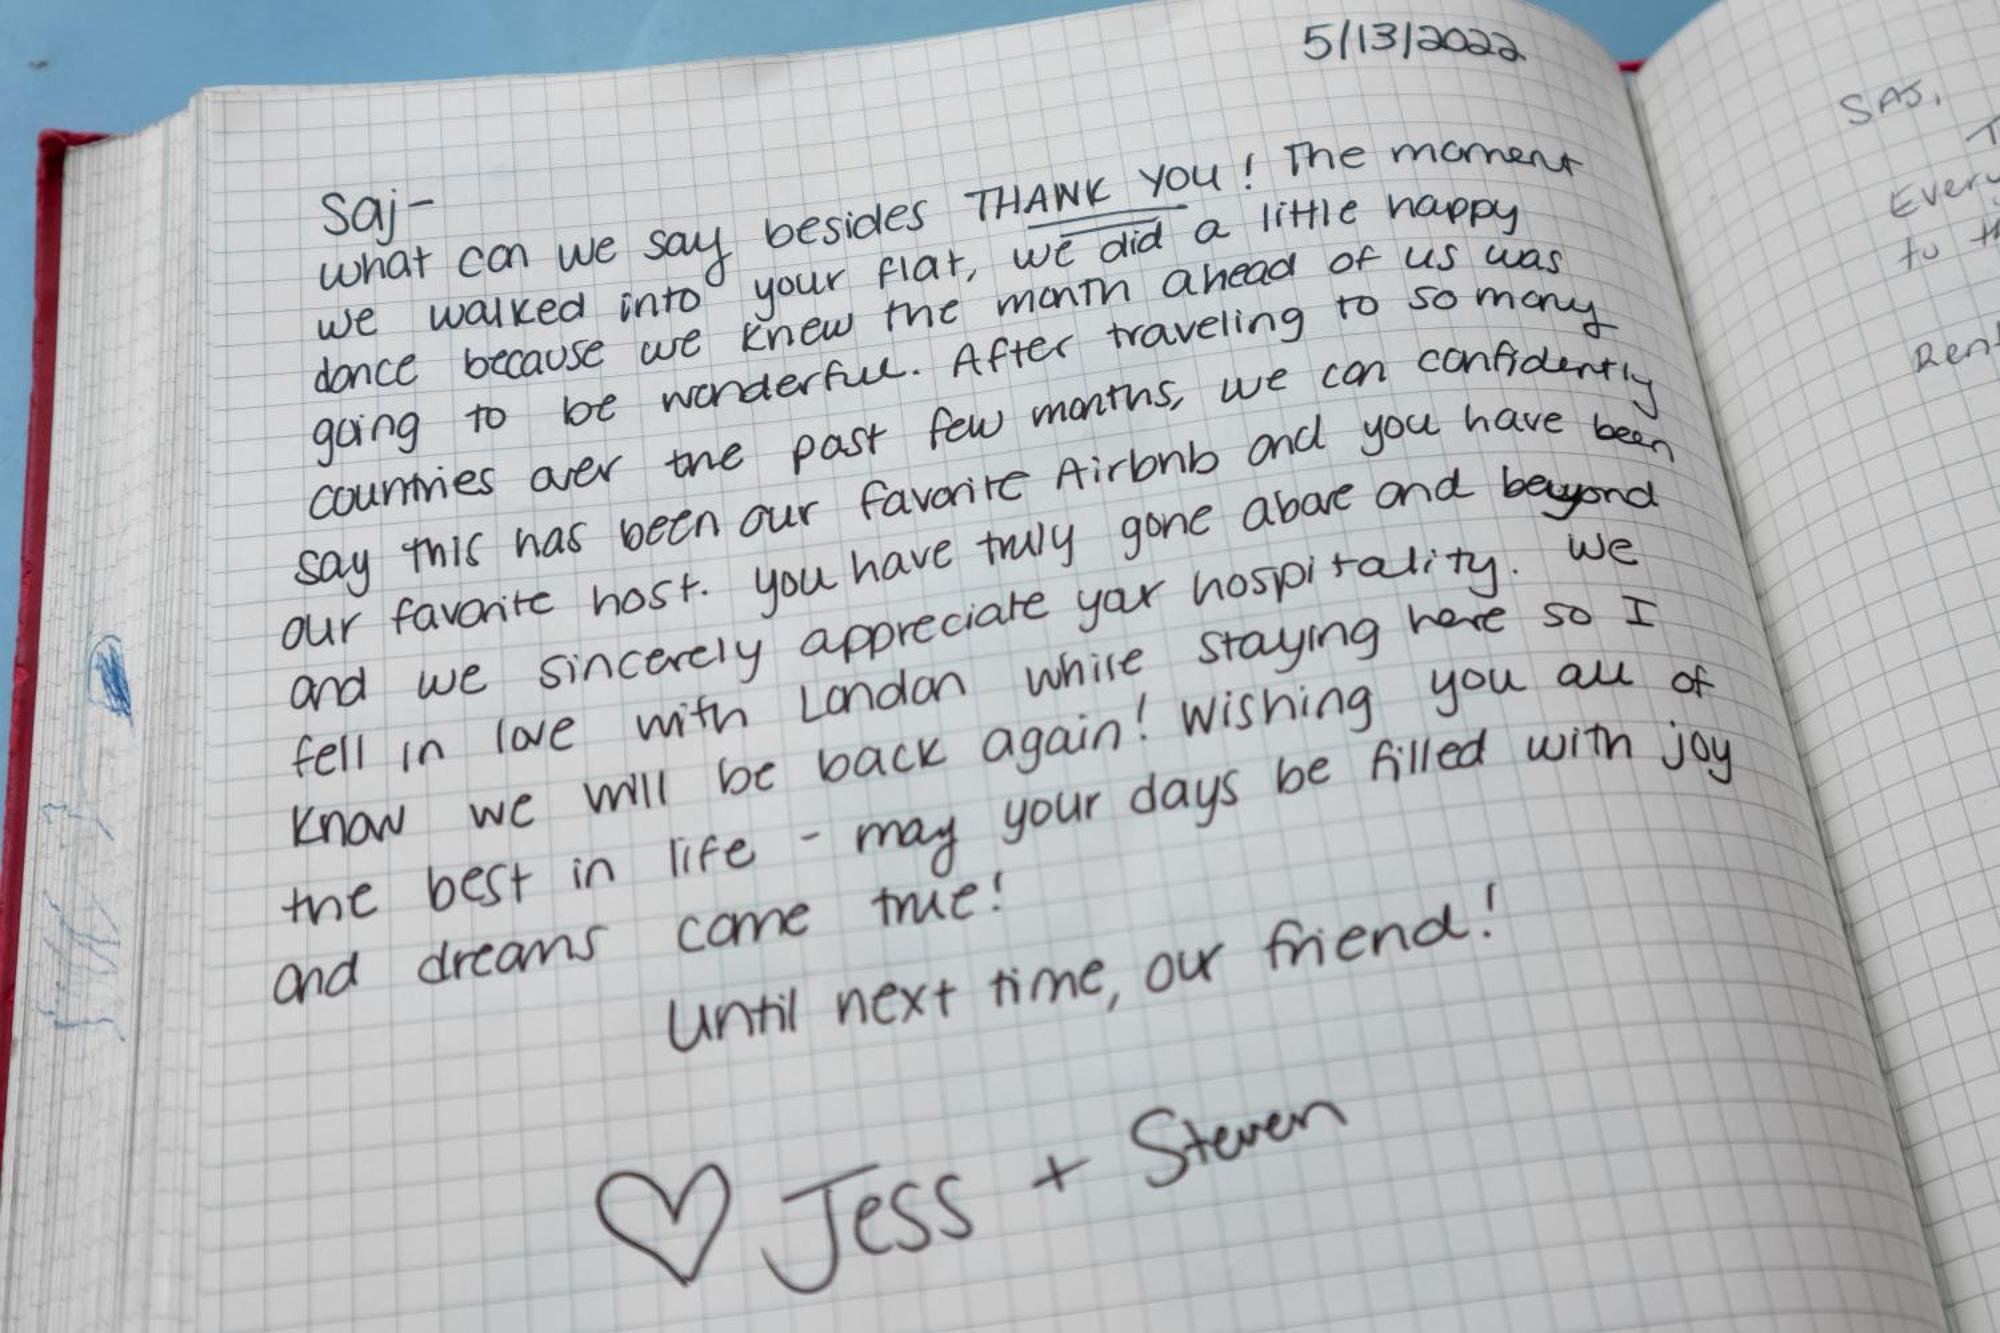 5/13/2022
Saj-
what can we say besides THANK YOU! The moment
we walked into your flat, we did a little happy
dance because we knew the month ahead of us was
going to be wonderful. After traveling to so many
countries over the past few months, we can confidently
say this has been our favorite Airbnb and you have been
our favorite host. You have truly gone above and beyond
and we sincerely appreciate your hospitality. We
fell in love with London while staying here so I
know we will be back again! Wishing you all of
the best in life - may your days be filled with joy
and dreams come true!
Until next time, our friend!
♡ Jess + Steven
SAJ,
Every
to